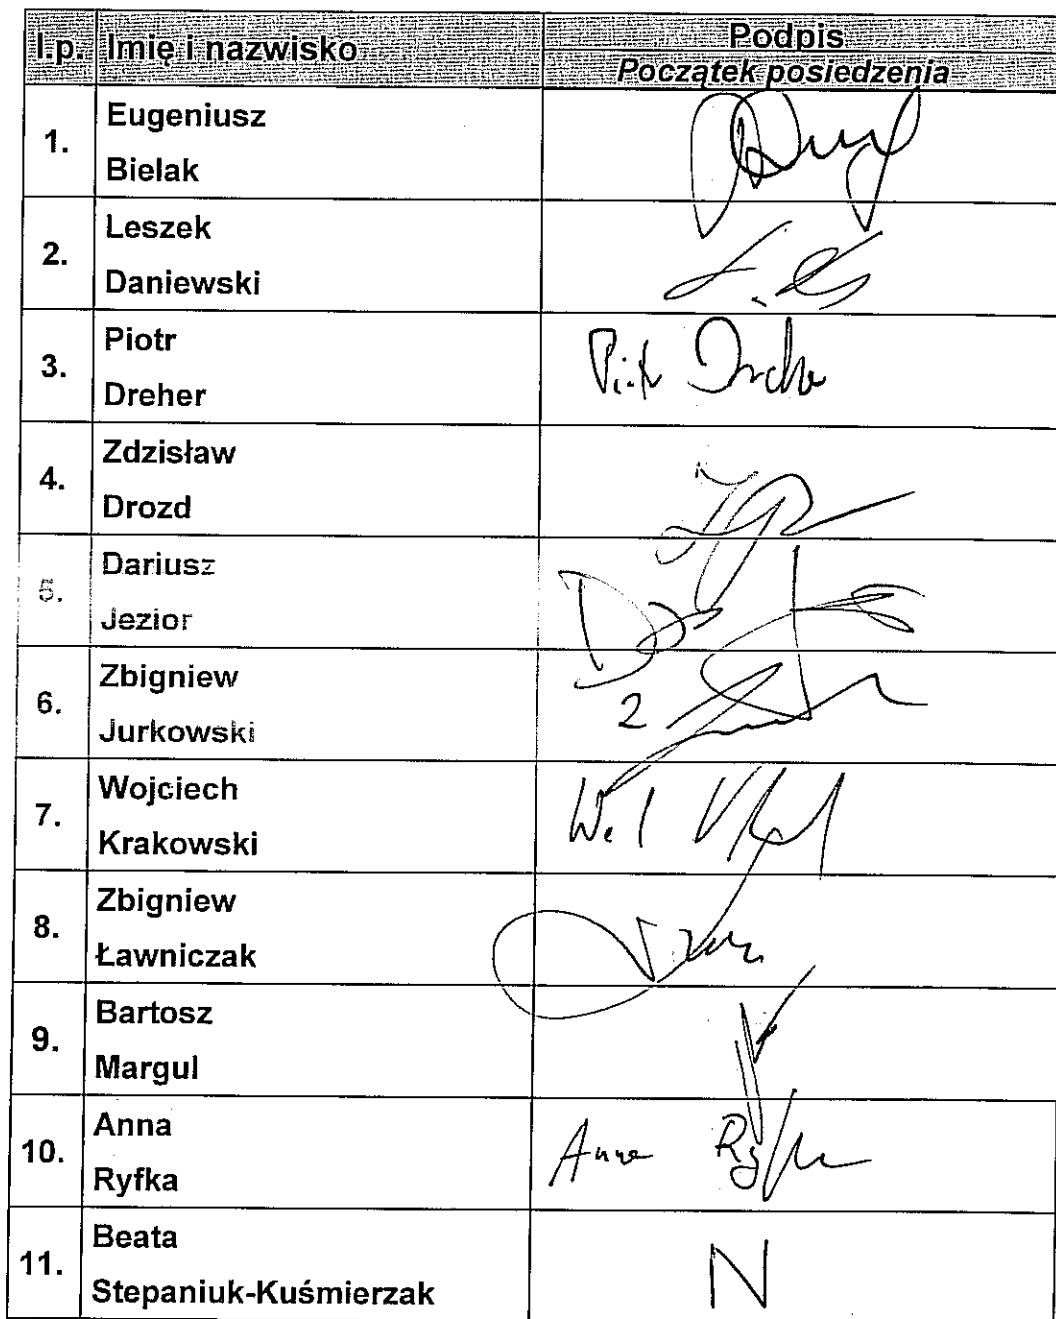 l.p. Imię i nazwisko Podpis
Początek posiedzenia
1. Eugeniusz
Bielak
2. Leszek
Daniewski
3. Piotr
Dreher
Piotr Dreher
4. Zdzisław
Drozd
5. Dariusz
Jezior
6. Zbigniew
Jurkowski
7. Wojciech
Krakowski
8. Zbigniew
Ławniczak
9. Bartosz
Margul
10. Anna
Ryfka
Anna Ryfka
11. Beata
Stepaniuk-Kuśmierzak
N